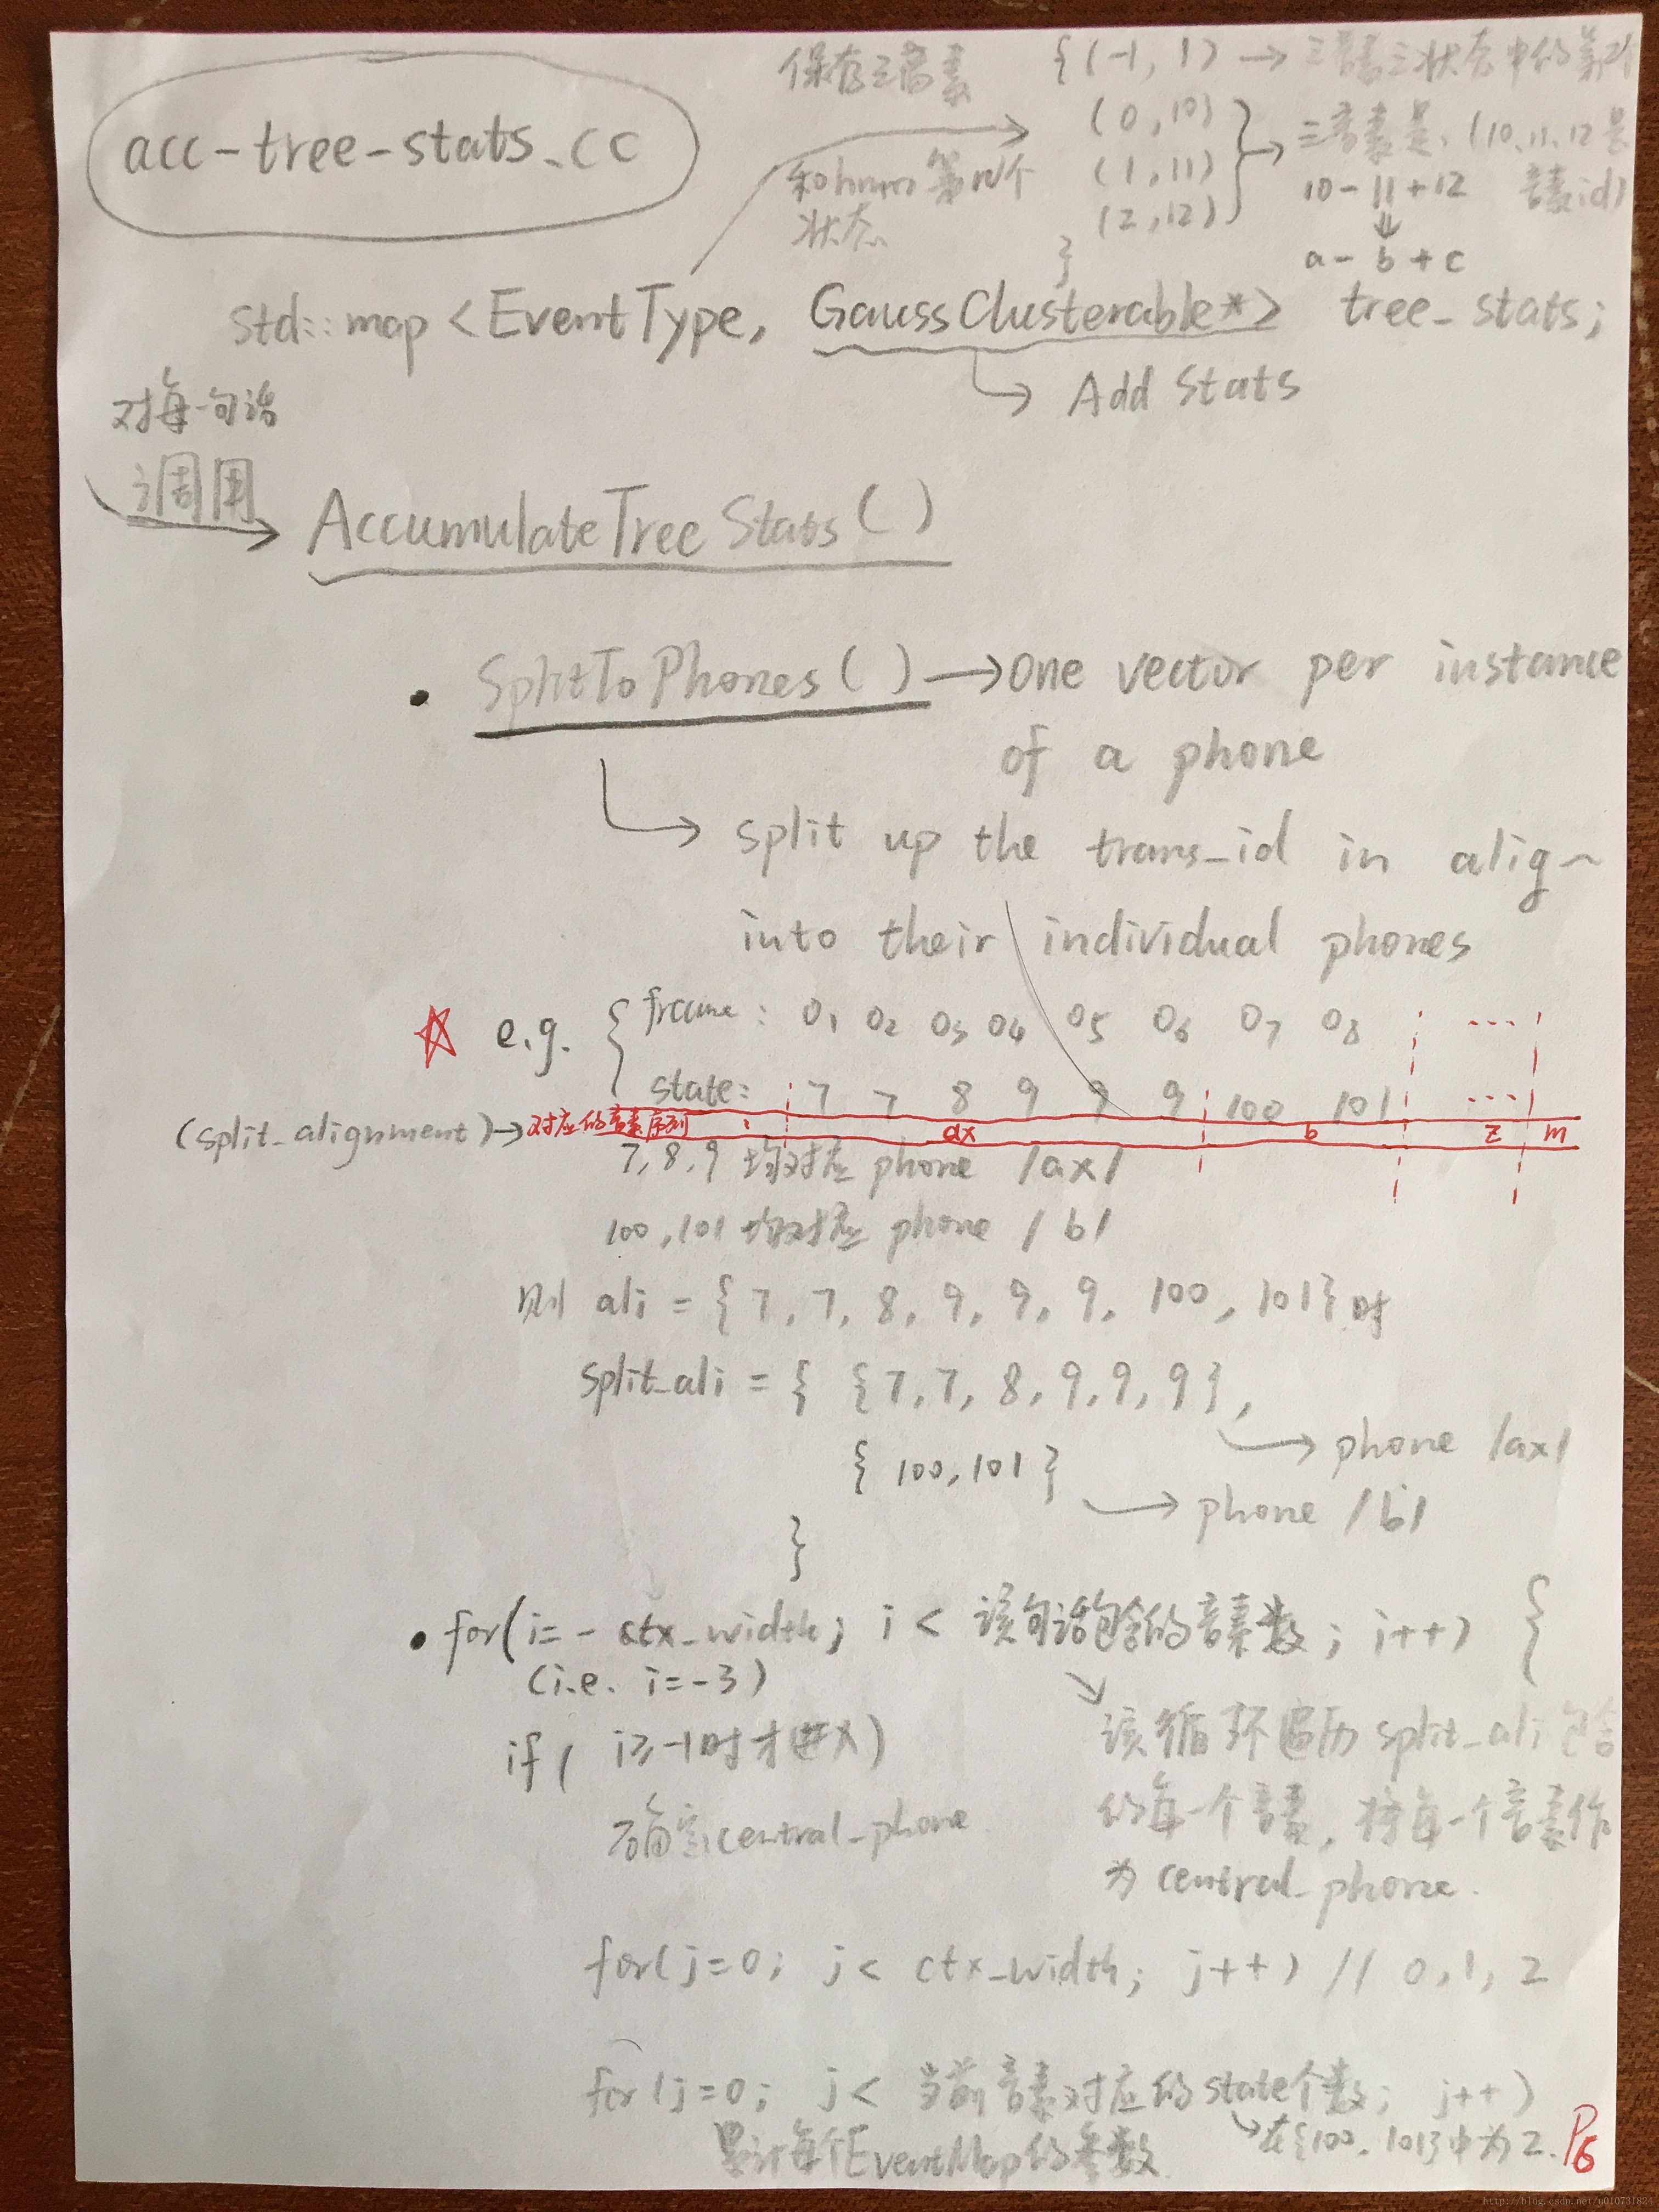 acc-tree-stats.cc
保存三音素
和hmm第几个
状态
{(-1, 1) → 三音素三状态中的第
(0, 10)
(1, 11)
(2, 12)
}
三音素是 (10,11,12是
10-11+12 音素id)
a-b+c
std::map <EventType, GaussClusterable*> tree_stats;
→ Add Stats
对每一句话
调用
AccumulateTreeStats()
• SplitToPhones() → one vector per instance
of a phone
→ split up the trans_id in align~
into their individual phones
☆ e.g. { frame: O1 O2 O3 O4 O5 O6 O7 O8 ...
state: 7 7 8 9 9 9 100 101 ...
(split_alignment)→对应的音素序列: ax b z m
7,8,9 均对应 phone /ax/
100,101 均对应 phone /b/
则 ali = {7, 7, 8, 9, 9, 9, 100, 101}时
split_ali = { {7,7,8,9,9,9},
→ phone /ax/
{100,101}
→ phone /b/
}
• for(i=-ctx_width; i < 该句话包含的音素数; i++) {
(i.e. i=-3)
if( i≥-1时才进入)
确定central_phone
该循环遍历split_ali包含
的每一个音素,将每一个音素作
为central_phone.
for(j=0; j< ctx_width; j++) // 0,1,2
for(j=0; j< 当前音素对应的state个数; j++)
↘在{100,101}中为2.
累计每个EventMap的参数
P6
http://blog.csdn.net/u010731824